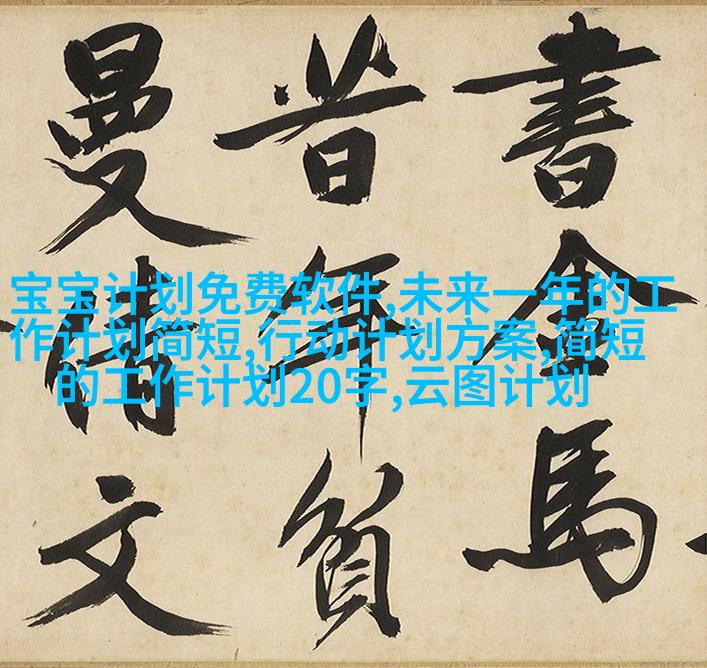 書金馬
昔年負
曼倩文
宝宝计划免费软件,未来一年的工
作计划简短,行动计划方案,简短
的工作计划20字,云图计划